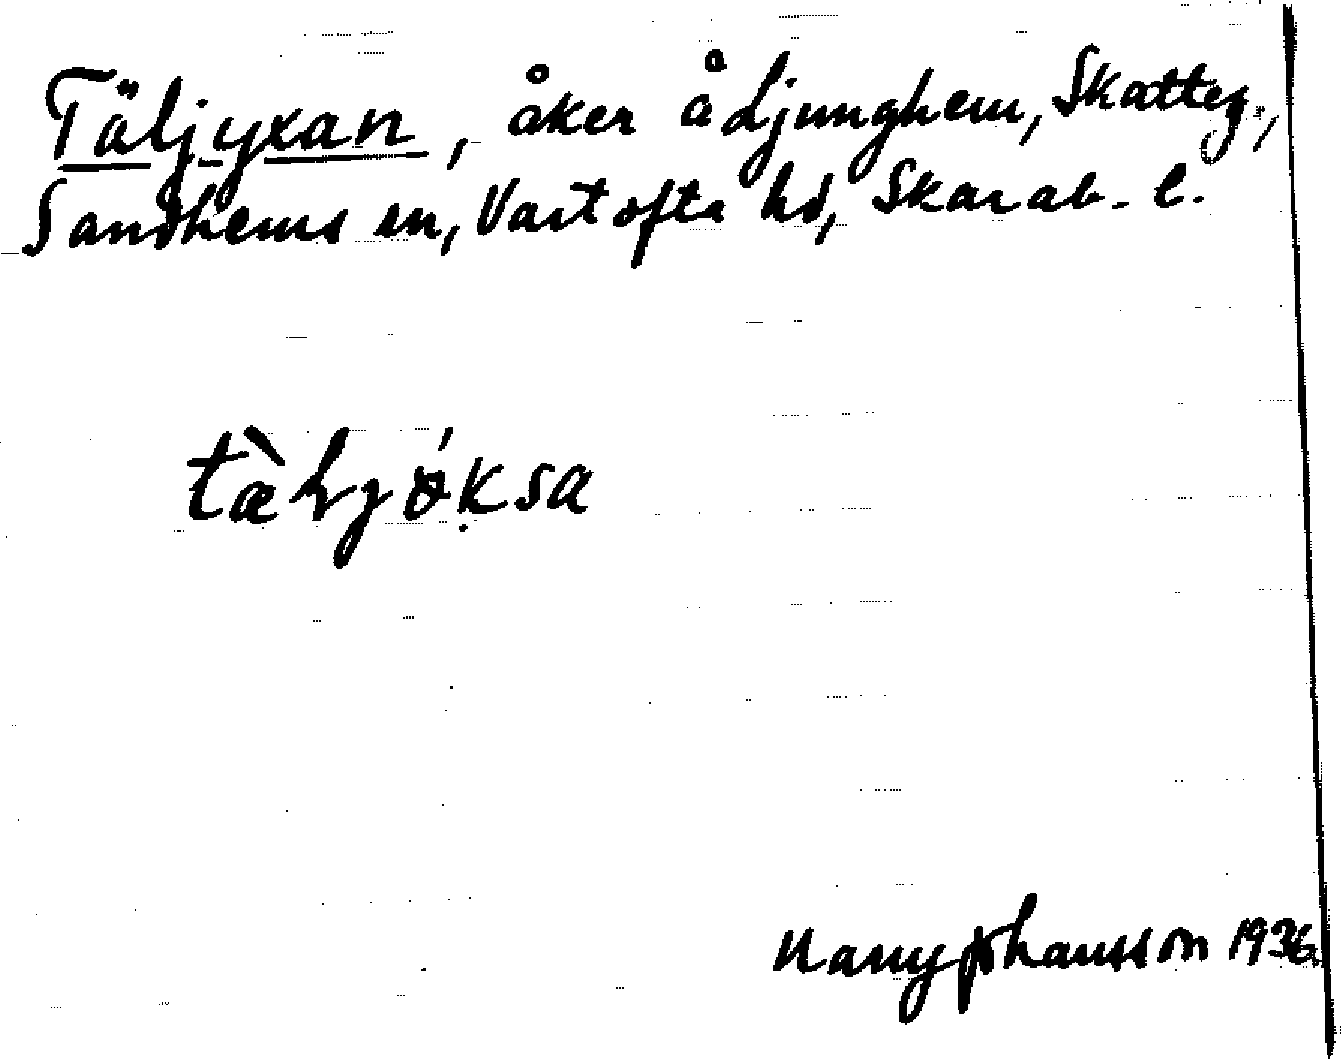 Täljyxan, åker å Ljunghem, Skatteg.,
Sandhems sn, Vartofta hd, Skarab. l.
tæ̀ljǿksa
Nanny Johansson 1936.